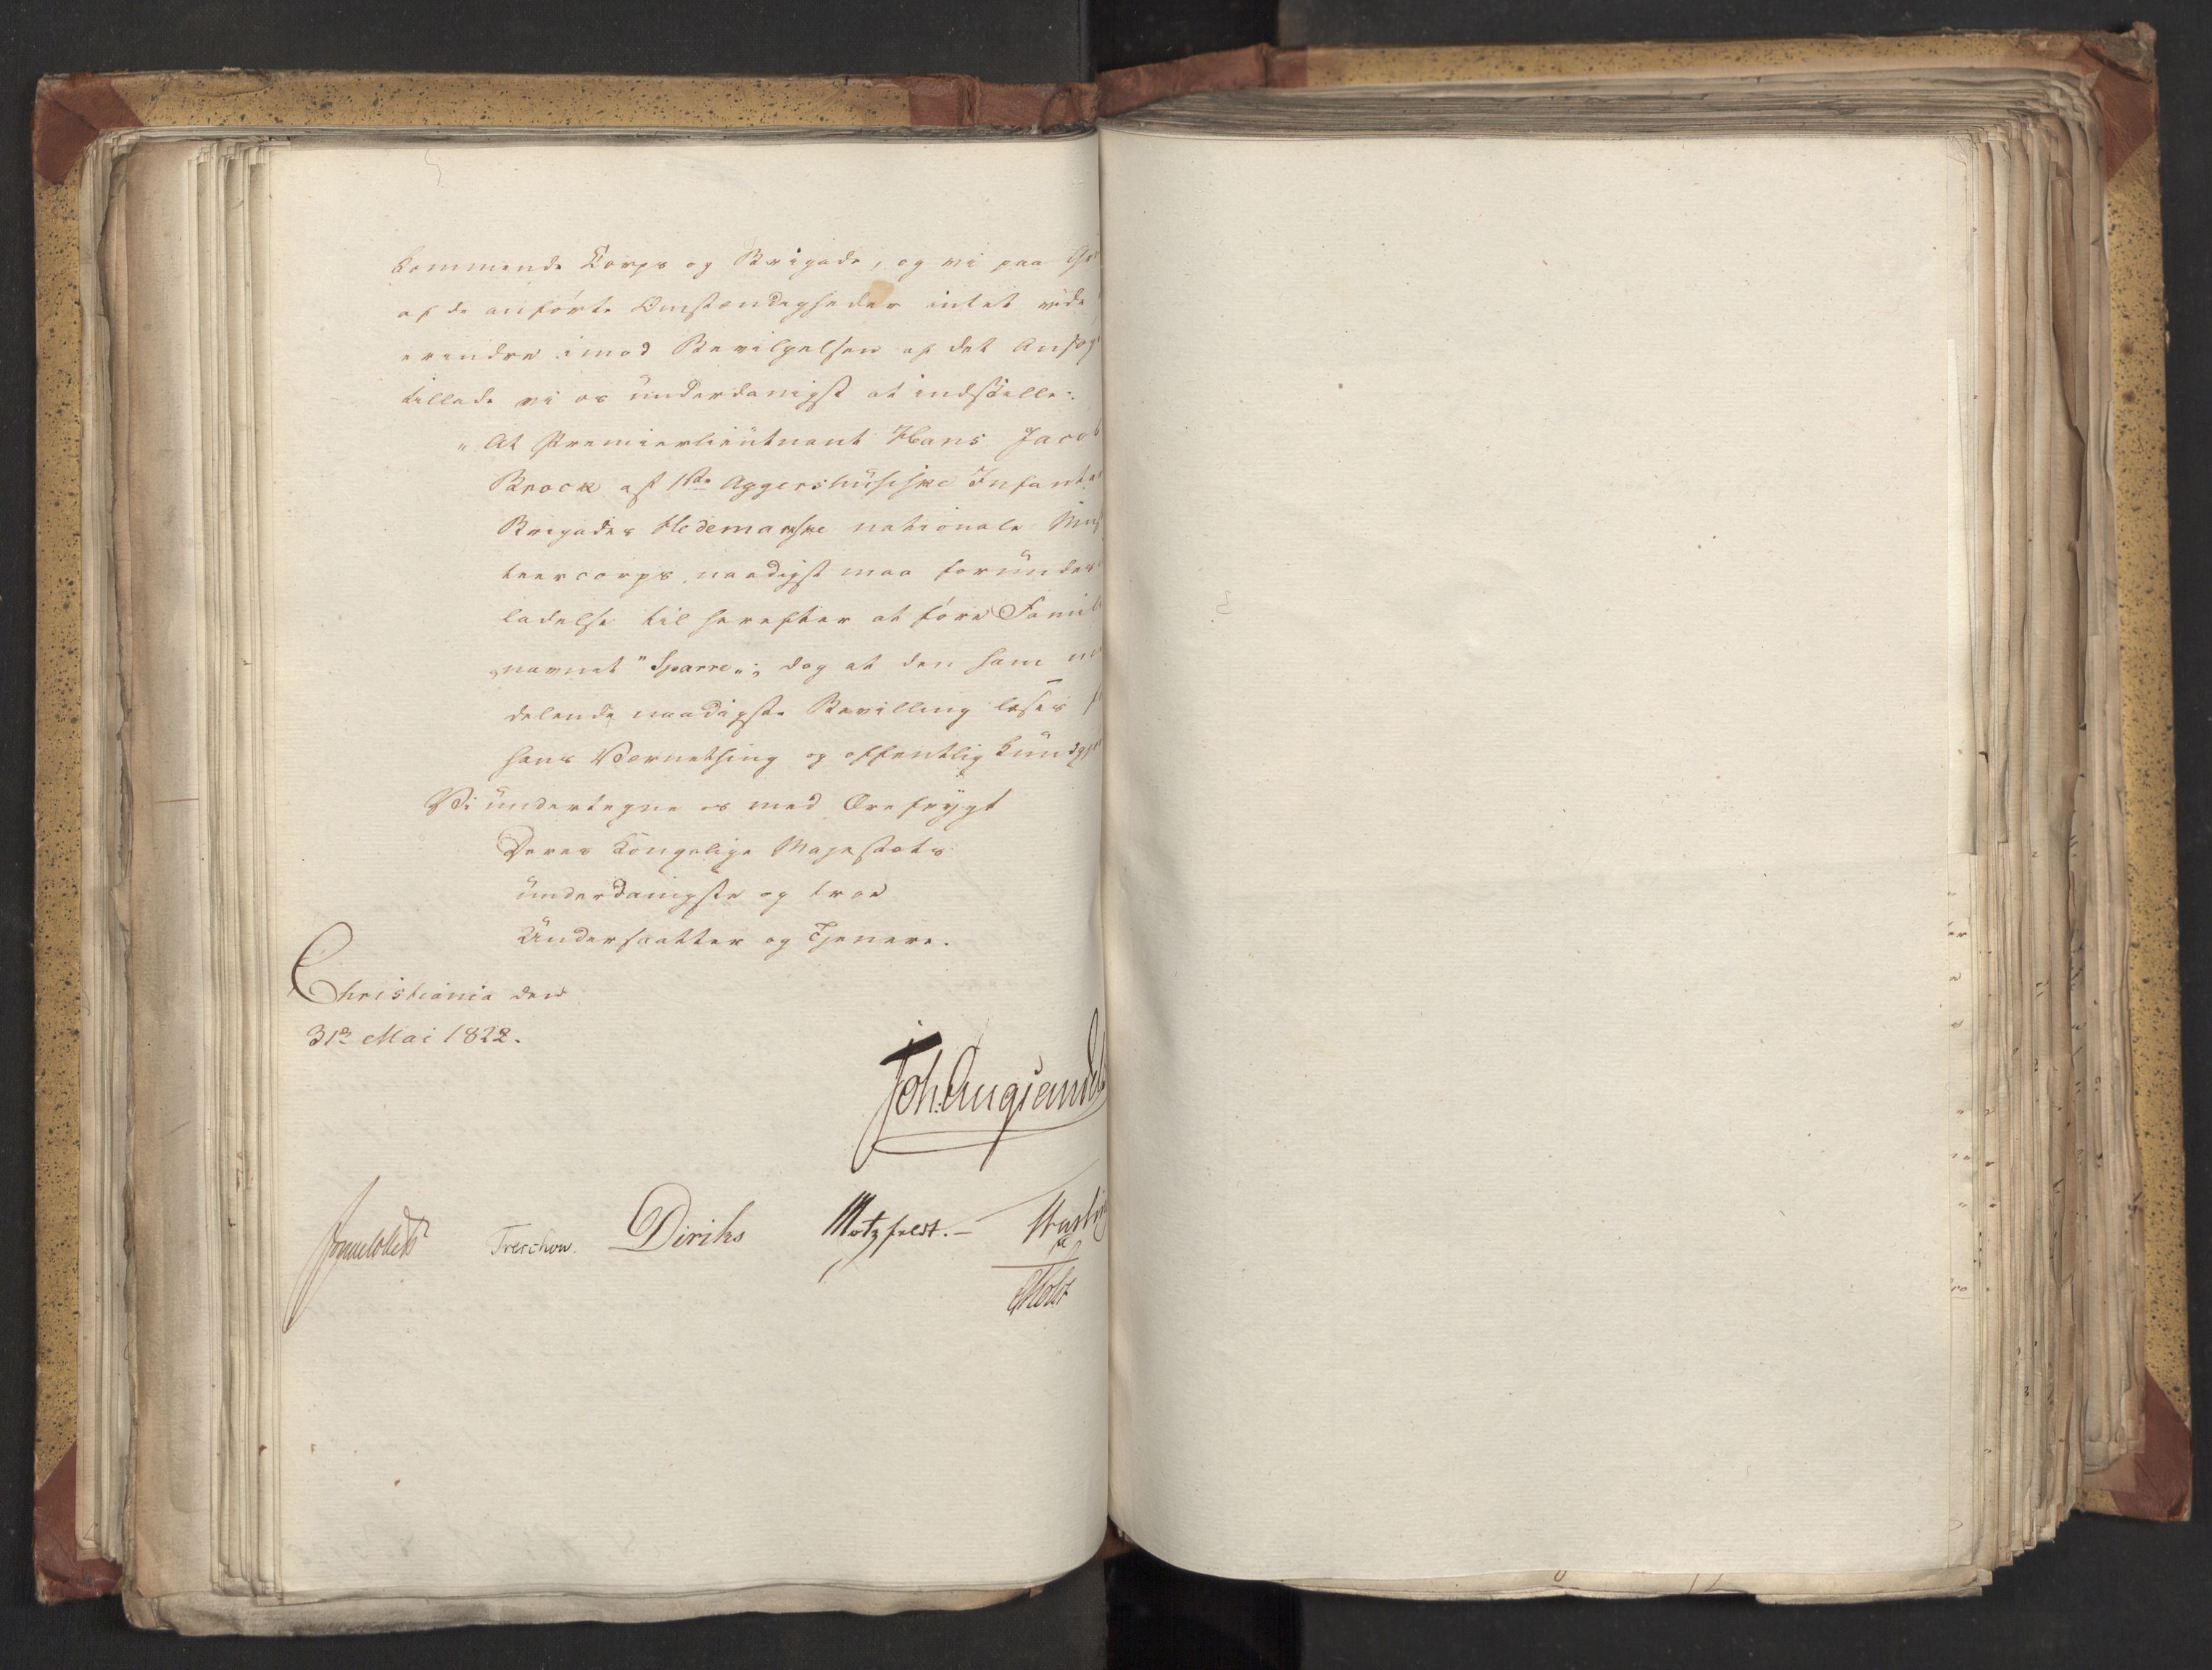 kommende Korps og Brigade, og vi paa
af de anførte Omstændigheder intet vide
erindre imod Bevilgelsen af det Ansøg
tillade vi os underdanigst at indstille:
"At Premierlieutnant Hans Jacob
Brock af 1ste Aggershusiske Infante
Brigades Hedemarkske nationale Mus
teercorps, naadigst maa forundes
ladelse til herefter at føre Famil
navnet "Sparre"; dog at den ham
delende naadigste Bevilling læses
hans Værnething og offentlig kundgj
Vi undertegne os med Ærefrygt
Deres Kongelige Majestæts
underdanigste og troe
Undersaatter og Tjenere.
Christiania den
31te Mai 1822.
Joh: Aug: Sandels
Sommelhielm Treschow. Diriks Motzfeldt.-
Holst